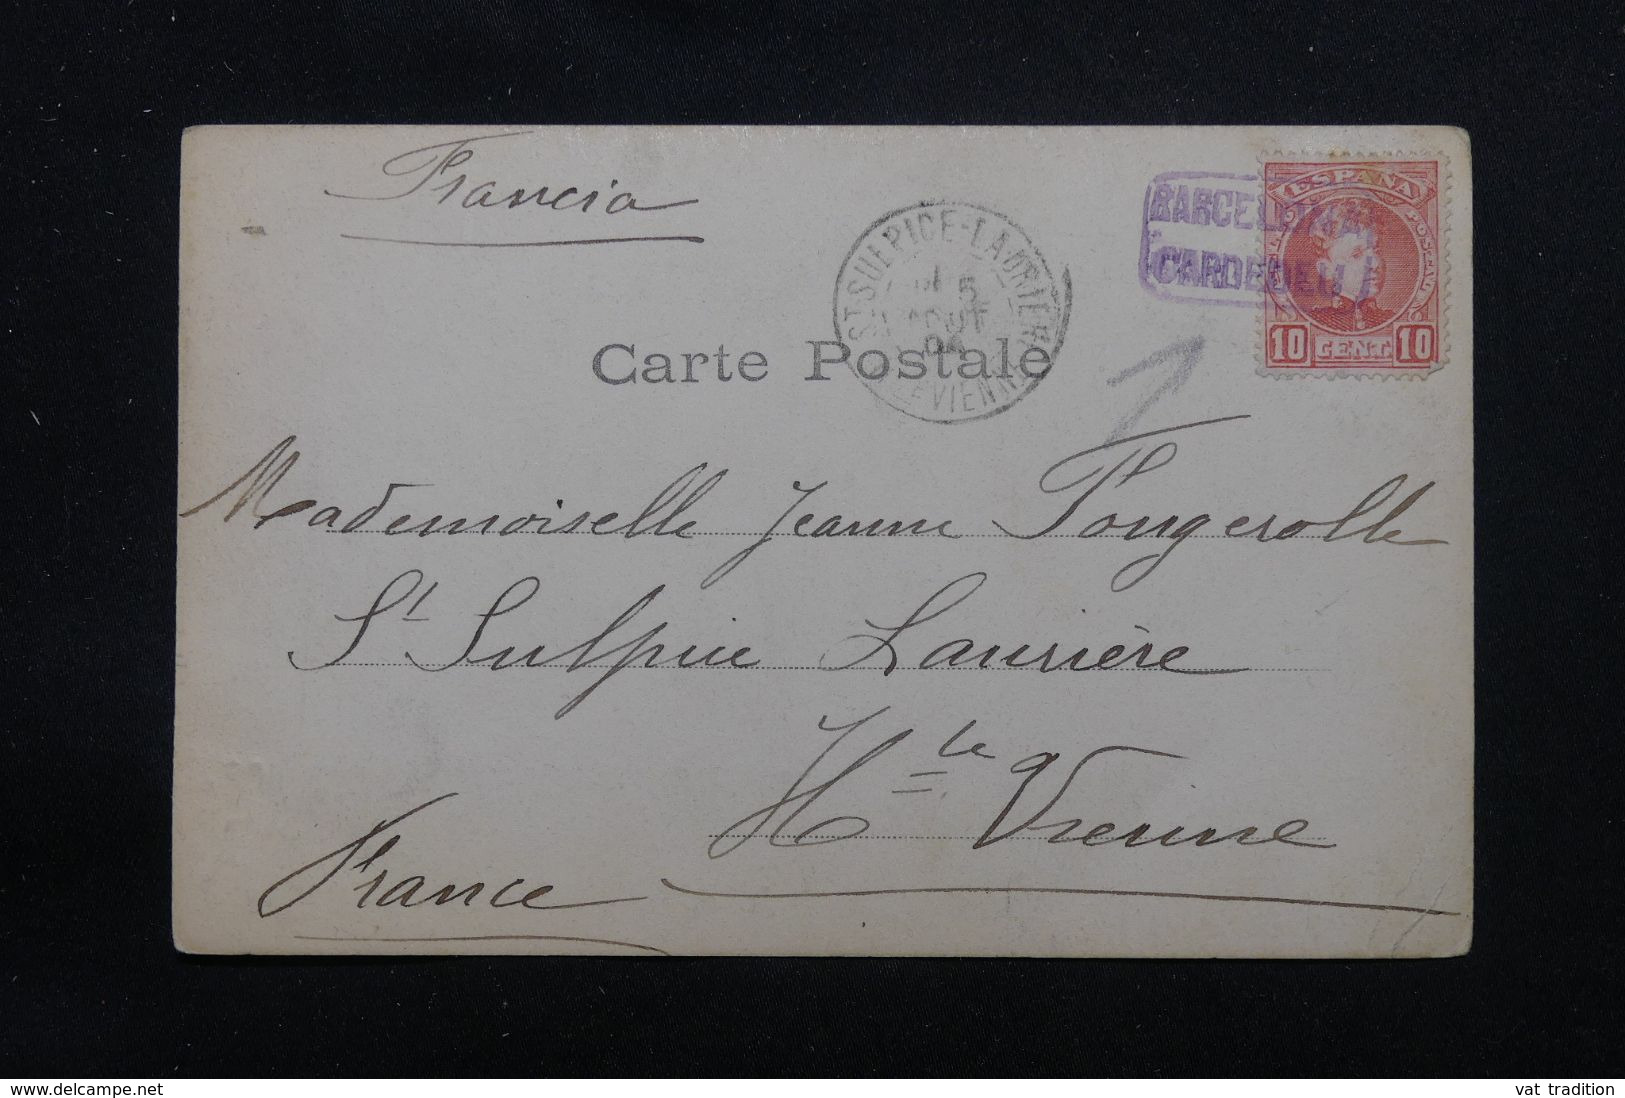 Francia
ESPAÑA
BARCELONA
CARDEDEU
10 CENT. 10
ST SULPICE-LAURIERE
5
AOUT
Carte Postale
Mademoiselle Jeanne Fougerolle
St Sulpice Laurière
Hte Vienne
France
www.delcampe.net
vat tradition